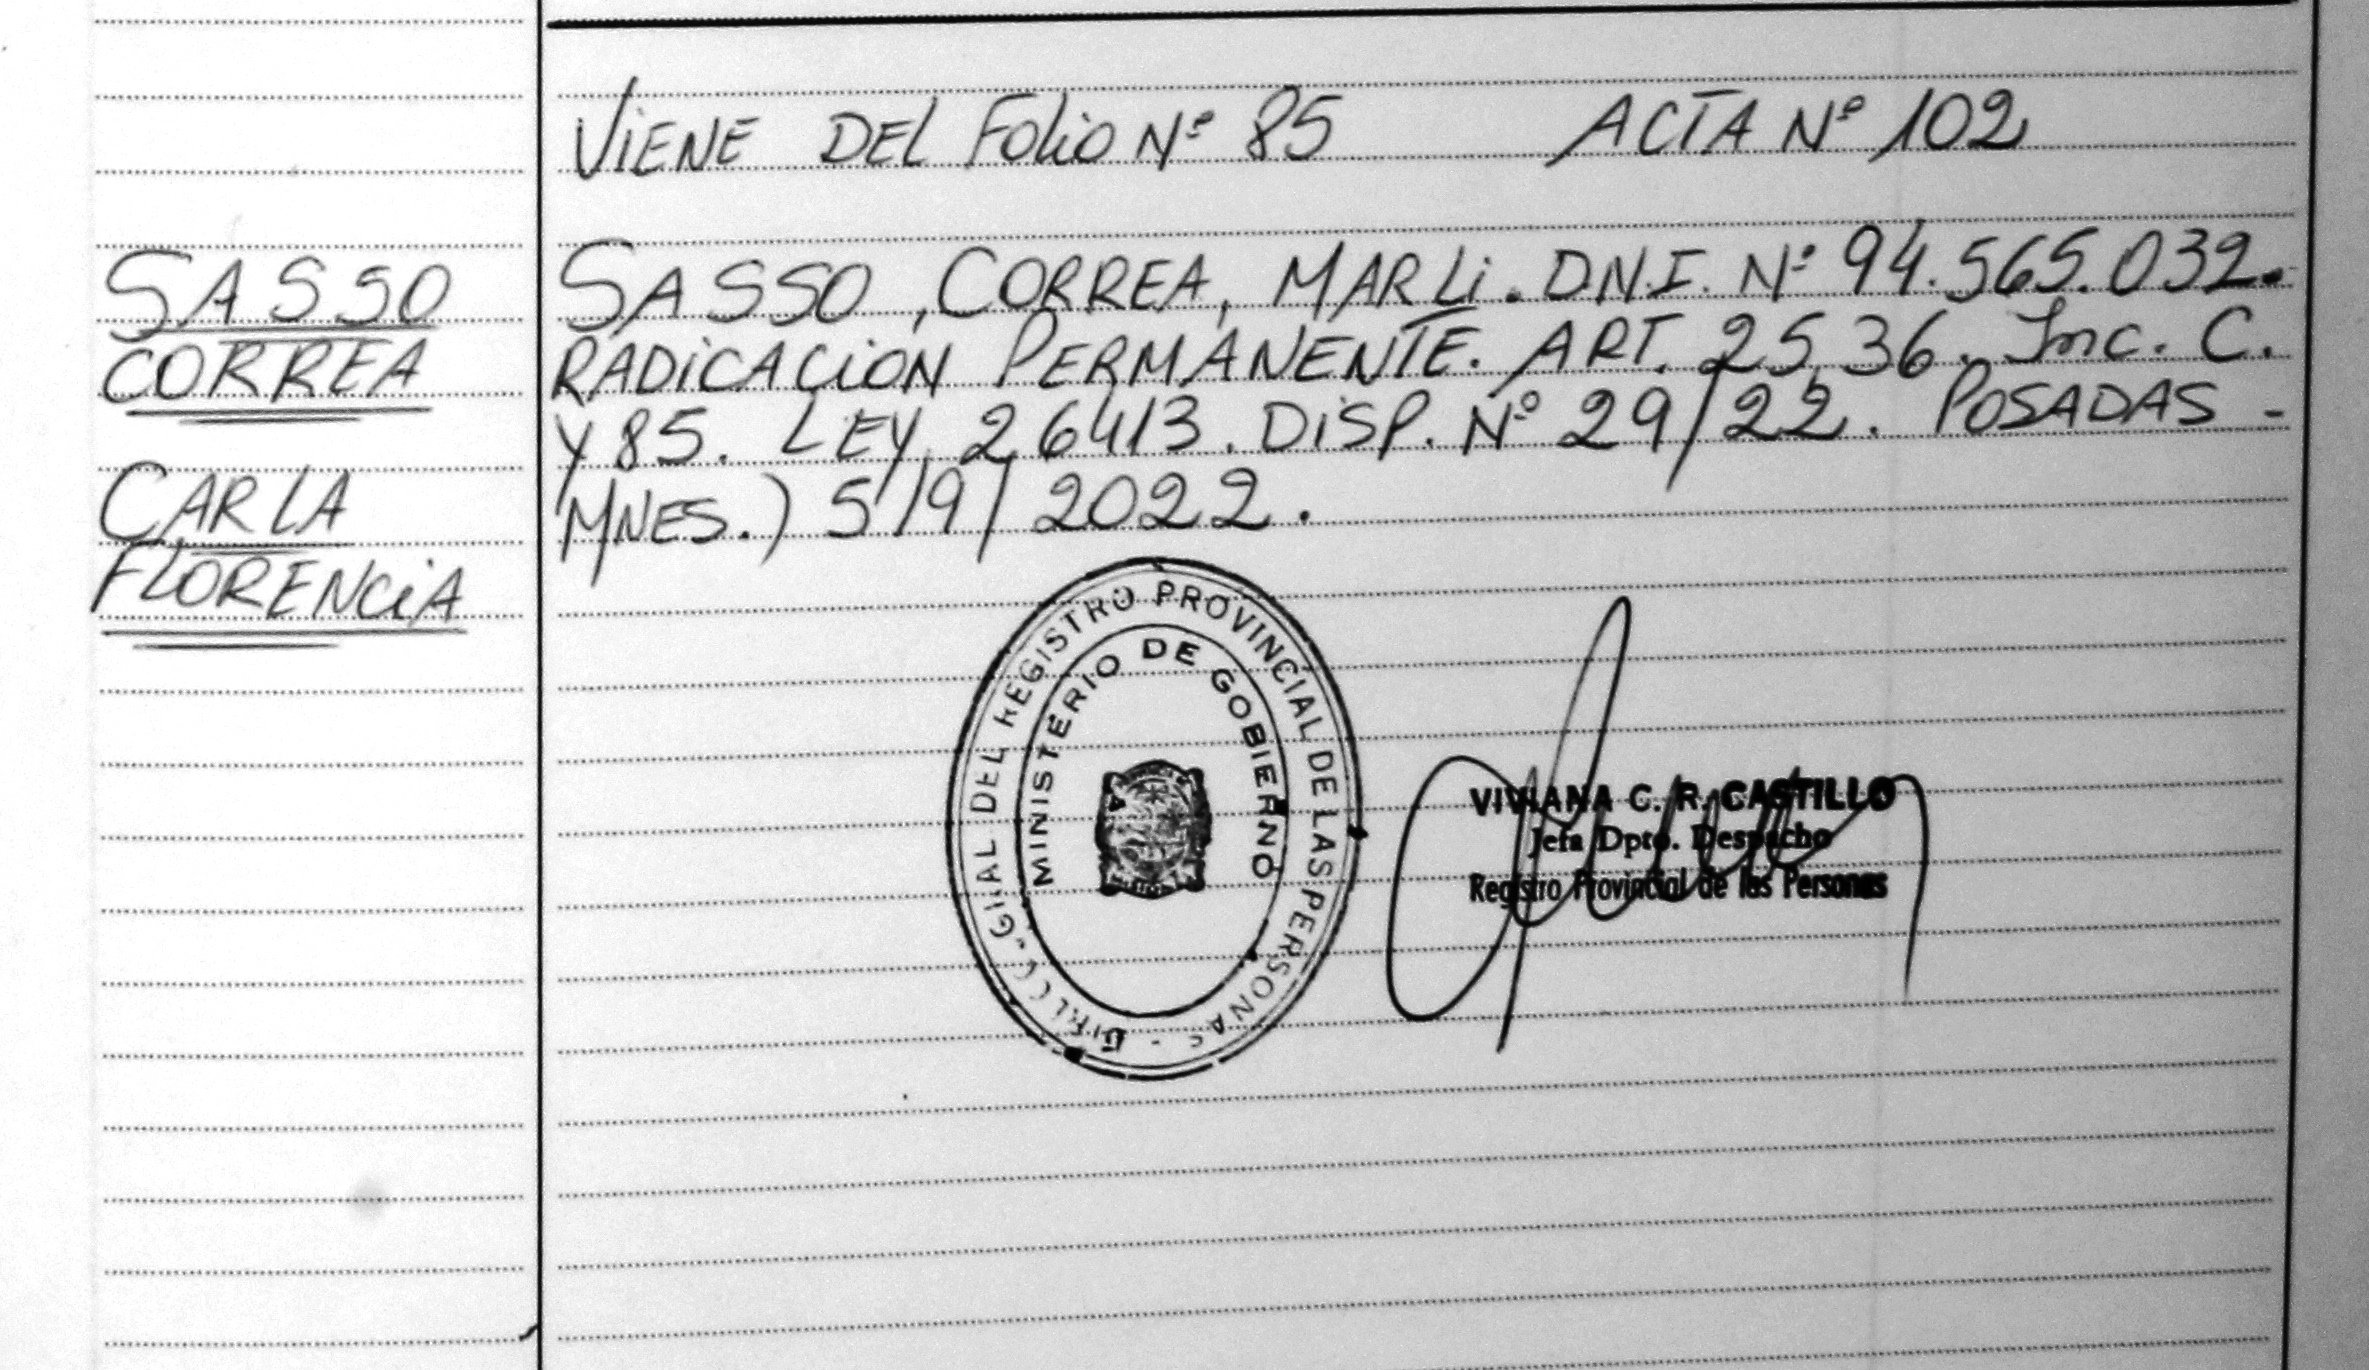 VIENE DEL FOLIO Nº 85 ACTA Nº 102
SASSO
CORREA
CARLA
FLORENCIA
SASSO, CORREA, MARLI. D.N.I. Nº 94.565.032.
RADICACION PERMANENTE. ART. 25, 36. Inc. C.
Y 85. LEY 26413. DISP. Nº 29/22. POSADAS -
MNES.) 5/9/2022.
GRAL DEL REGISTRO PROVINCIAL DE LAS PERSONAS -
MINISTERIO DE GOBIERNO
VIVIANA C. R. CASTILLO
Jefa Dpto. Despacho
Registro Provincial de las Personas